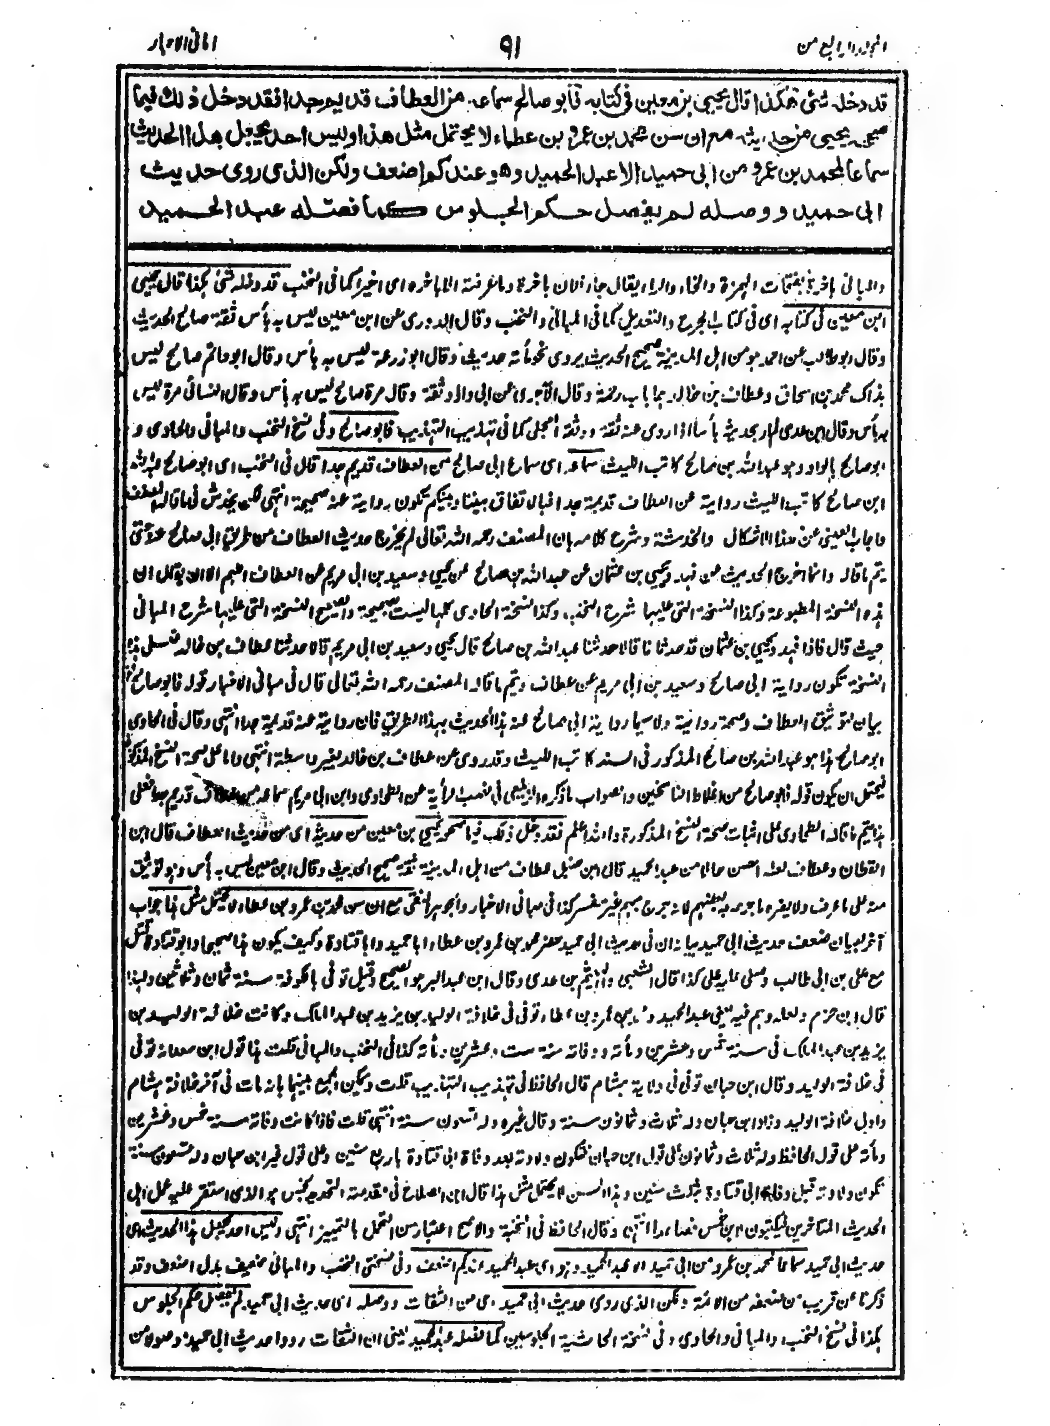 الجزء الرابع من
٩١
امانی الاحبار
قد دخله شئ هكذا قال يحيى بن معين فی كتابه فأبو صالح سماعه من العطاف قديم جدا فقد دخل ذلك فيما
صححه يحيى من حديثه مع ان سن محمد بن عمرو بن عطاء لا يحتمل مثل هذا وليس احد يجعل هذا الحديث
سماعا لمحمد بن عمرو من ابی حميد الا عبد الحميد وهو عندكم اضعف ولكن الذی روی حديث
ابی حميد ووصله لم يفصل حكم الجلوس كما فصله عبد الحميد
والمبانی باخرة بفتحات الهمزة والخاء والراء يقال جاء فلان باخرة وما عرفته الا باخره ای اخيرا كما فی النخب قد دخله شئ هكذا قال يحيى
ابن معين فی كتابه ای فی كتاب الجرح والتعديل كما فی المبانی والنخب وقال الدوری عن ابن معين ليس به بأس ثقة صالح الحديث
وقال ابو طالب عن احمد هو من اهل المدينة صحيح الحديث يروی نحو مأة حديث وقال ابو زرعة ليس به بأس وقال ابو حاتم صالح ليس
بذاك محمد بن اسحاق وعطاف بن خالد هما باب رحمة وقال الآجری عن ابی داؤد ثقة وقال مرة صالح ليس به بأس وقال النسائی مرة ليس
به بأس وقال ابن عدی لم ار بحديثه بأسا اذا روی عنه ثقة ووثقه العجلی كما فی تهذيب التهذيب فابو صالح وفی نسخ النخب والمبانی والحاوی و
ابو صالح بالواو وهو عبد الله بن صالح كاتب الليث سماعه ای سماع ابی صالح من العطاف قديم جدا قال فی النخب ای ابو صالح عبد الله
ابن صالح كاتب الليث روايته عن العطاف قديمة جدا فبالاتفاق بيننا وبينكم تكون روايته عنه صحيحة انتهى لكن يخدش فی ما قاله المصنف
فاجاب العينی عن هذا الاشكال والخدشة وشرح كلامه بان المصنف رحمه الله تعالى لم يخرج حديث العطاف من طريق ابی صالح عنه حتى
يتم ما قاله وانما اخرج الحديث عن فهد ويحيى بن عثمان عن عبد الله بن صالح عن يحيى وسعيد بن ابی مريم عن العطاف اللهم الا ان يقال ان
هذه النسخة المطبوعة وكذا النسخة التی عليها شرح النخب وكذا نسخة الحاوی كلها ليست بصحيحة والصحيح النسخة التی عليها شرح المبانی
حيث قال فاذا فهد ويحيى بن عثمان قد حدثانا قالا حدثنا عبد الله بن صالح قال يحيى وسعيد بن ابی مريم قالا حدثنا عطاف بن خالد فعلى هذه
النسخة تكون رواية ابی صالح وسعيد بن ابی مريم عن عطاف ويتم ما قاله المصنف رحمه الله تعالى قال فی مبانی الاخبار قوله فابو صالح
بيان توثيق العطاف وصحة روايته ولا سيما رواية ابی صالح عنه هذا الحديث بهذا الطريق فان روايته عنه قديمة جدا انتهى وقال فی الحاوی
ابو صالح هذا هو عبد الله بن صالح المذكور فی السند كاتب الليث وقد روی عن عطاف بن خالد بغير واسطة انتهى واما على صحة النسخ المذكورة
فيحتمل ان يكون قوله فابو صالح من اغلاط الناسخين والصواب ما ذكره الزيلعی فی نصب الراية عن الطحاوی وابن ابی مريم سماعه من عطاف قديم جدا فعلى
هذا يتم ما قاله الطحاوی على اثبات صحة النسخ المذكورة والله اعلم فقد دخل ذلك فيما صححه يحيى بن معين من حديثه ای من حديث العطاف قال ابن
القطان وعطاف لعله احسن حالا من عبد الحميد قال ابن حنبل عطاف من اهل المدينة ثقة صحيح الحديث وقال ابن معين ليس به بأس وهو توثيق
منه على ما عرف ولا يضره ما جرحه به بعضهم لانه جرح مبهم غير مفسر كذا فی مبانی الاخبار والجوهر النقی مع ان سن محمد بن عمرو بن عطاء لا يحتمل مثل هذا جواب
آخر لبيان ضعف حديث ابی حميد بيانه ان فی حديث ابی حميد حضر محمد بن عمرو بن عطاء ابا حميد وابا قتادة وكيف يكون هذا صحيحا وابو قتادة قتل
مع علی بن ابی طالب وصلى عليه علی كذا قال الشعبی والهيثم بن عدی وقال ابن عبد البر هو الصحيح وقيل توفی بالكوفة سنة ثمان وثلاثين ولهذا
قال ابن حزم ولعله وهم فيه يعنی عبد الحميد ومحمد بن عمرو بن عطاء توفی فی خلافة الوليد بن يزيد بن عبد الملك وكانت خلافة الوليد بن
يزيد بن عبد الملك فی سنة خمس وعشرين ومأة ووفاته سنة ست وعشرين ومأة كذا فی النخب والمبانی قلت هذا قول ابن سعد انه توفی
فی خلافة الوليد وقال ابن حبان توفی فی ولاية هشام قال الحافظ فی تهذيب التهذيب قلت ويمكن الجمع بينهما بانه مات فی آخر خلافة هشام
واول خلافة الوليد وزاد ابن حبان وله ثلاث وثمانون سنة وقال غيره وله تسعون سنة انتهى قلت فاذا كانت وفاته سنة خمس وعشرين
ومأة على قول الحافظ وله ثلاث وثمانون على قول ابن حبان فتكون ولادته بعد وفاة ابی قتادة باربع سنين وعلى قول غير ابن حبان وله تسعون سنة
تكون ولادته قبل وفاة ابی قتادة بثلث سنين وهذا السن لا يحتمل مثل هذا قال ابن الصلاح فی مقدمته التحديد بخمس هو الذی استقر عليه عمل اهل
الحديث المتاخرين فيكتبون لابن خمس فصاعدا انتهى وقال الحافظ فی النخبة والاصح اعتبار سن التحمل بالتمييز انتهى وليس احد يجعل هذا الحديث ای
حديث ابی حميد سماعا لمحمد بن عمرو من ابی حميد الا عبد الحميد وهو ای عبد الحميد عندكم اضعف وفی نسختی النخب والمبانی ضعيف بدل اضعف وقد
ذكرنا عن قريب من ضعفه من الائمة ولكن الذی روی حديث ابی حميد ای من الثقات ووصله ای حديث ابی حميد لم يفصل حكم الجلوس
هكذا فی نسخ النخب والمبانی والحاوی وفی نسخة الحاشية الجلوسين كما فصله عبد الحميد يعنی ان الثقات رووا حديث ابی حميد وصولا من